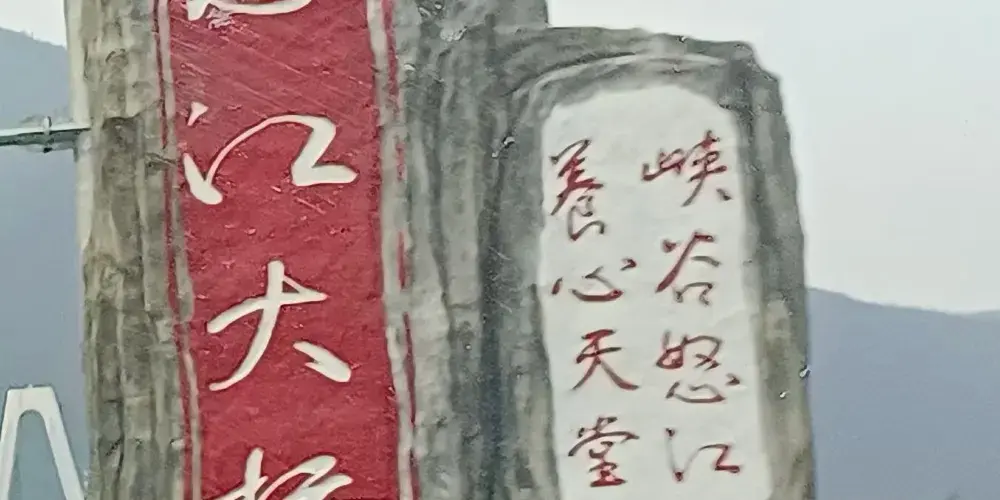 江大
峡谷怒江
養心天堂